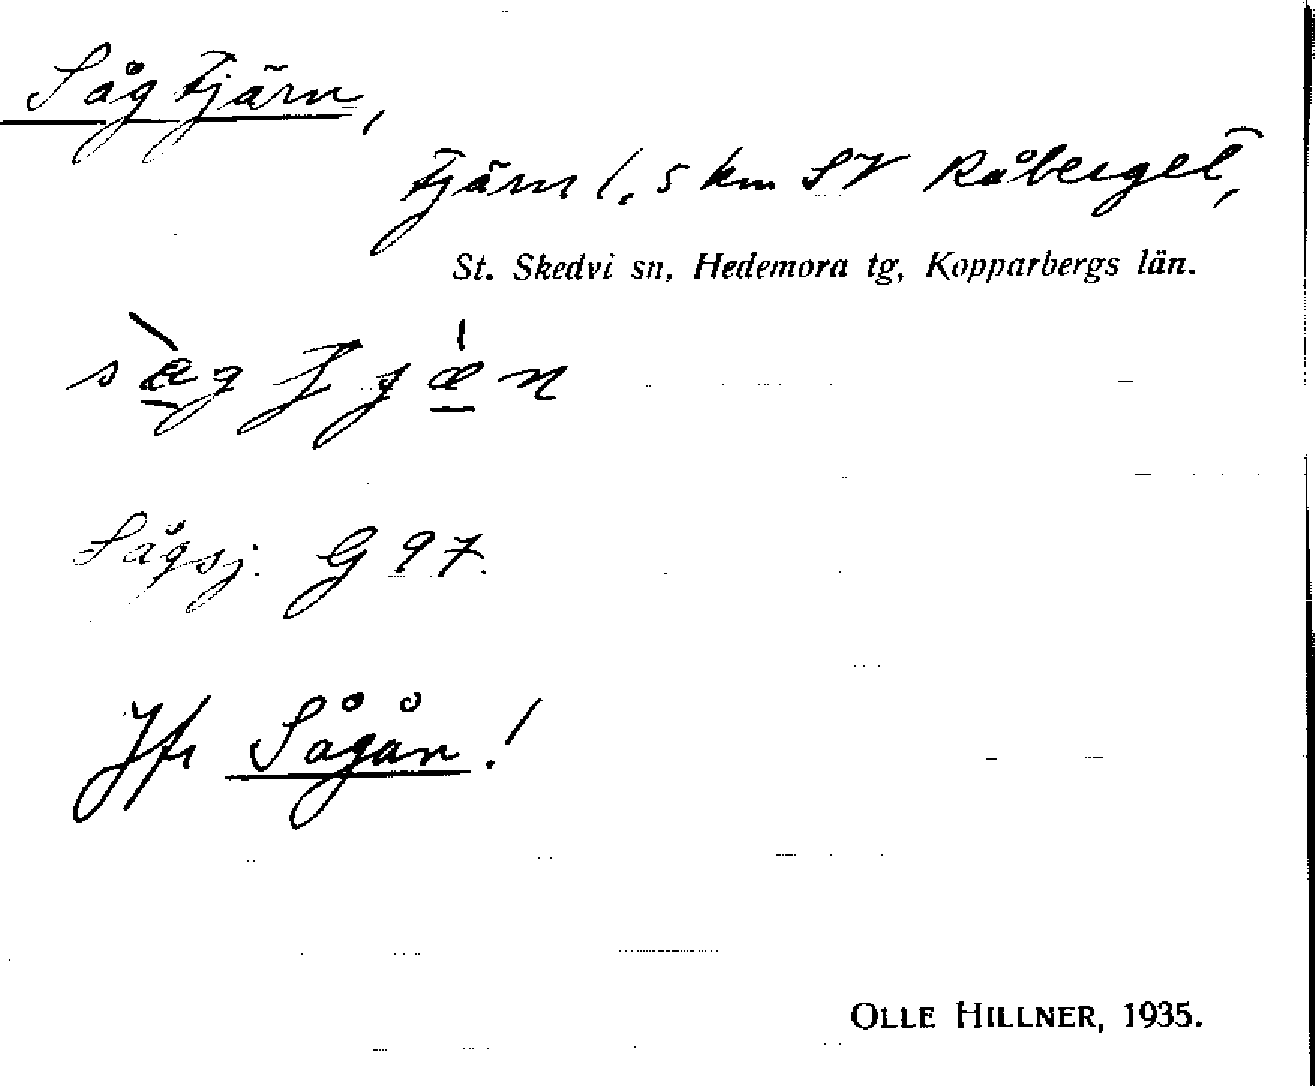 Sågtjärn,
tjärn 1,5 km SV Råberget,
St. Skedvi sn, Hedemora tg, Kopparbergs län.
Sågsj. G 97.
Jfr Sågån!
OLLE HILLNER, 1935.